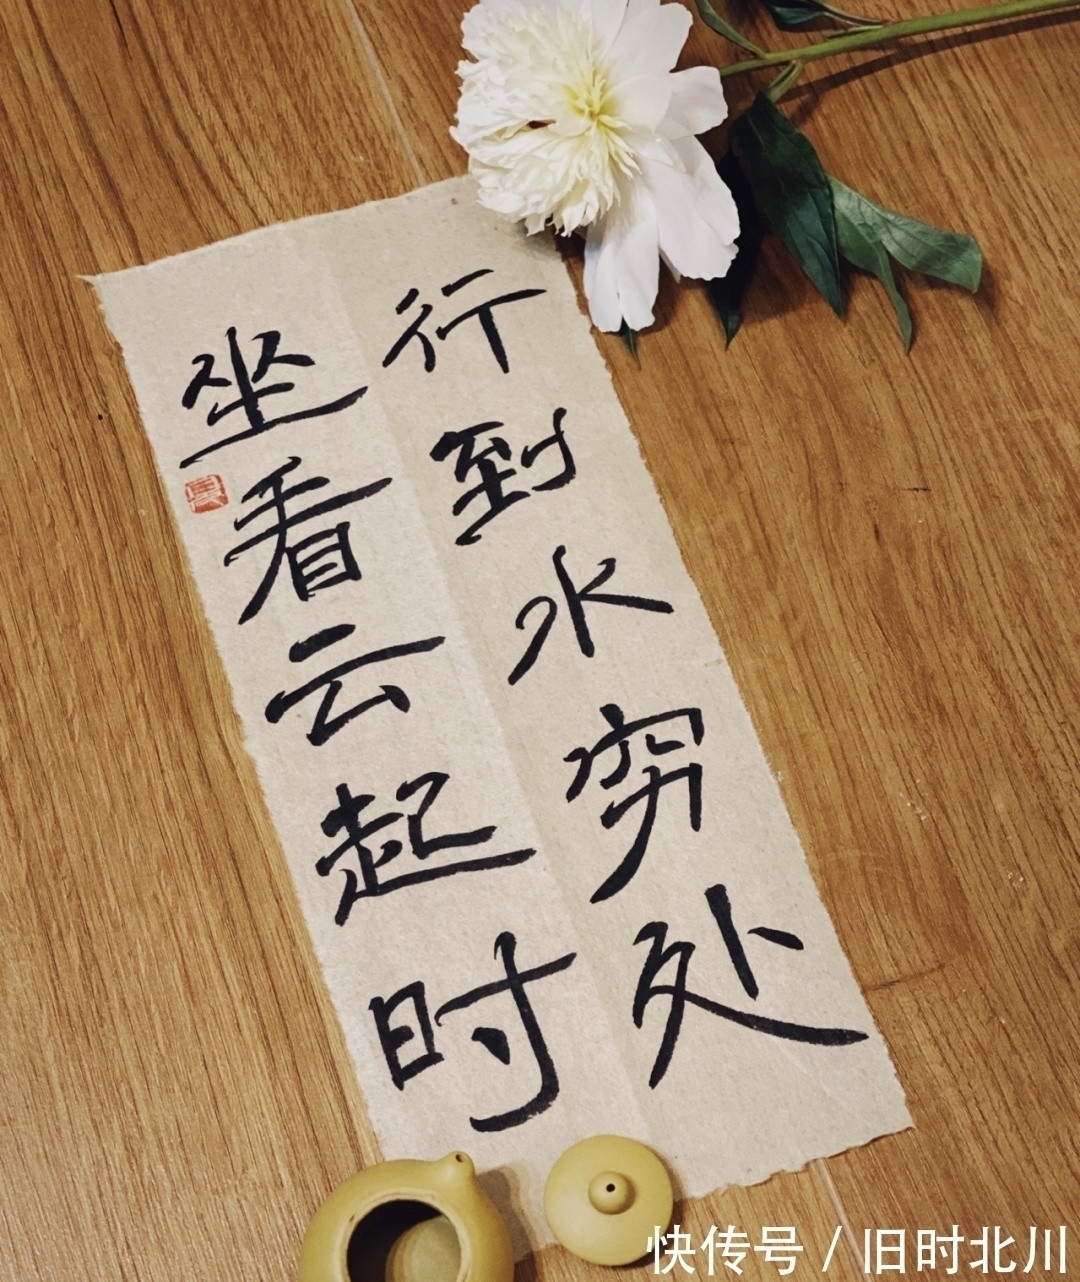 行到水穷处
坐看云起时
快传号 / 旧时北川